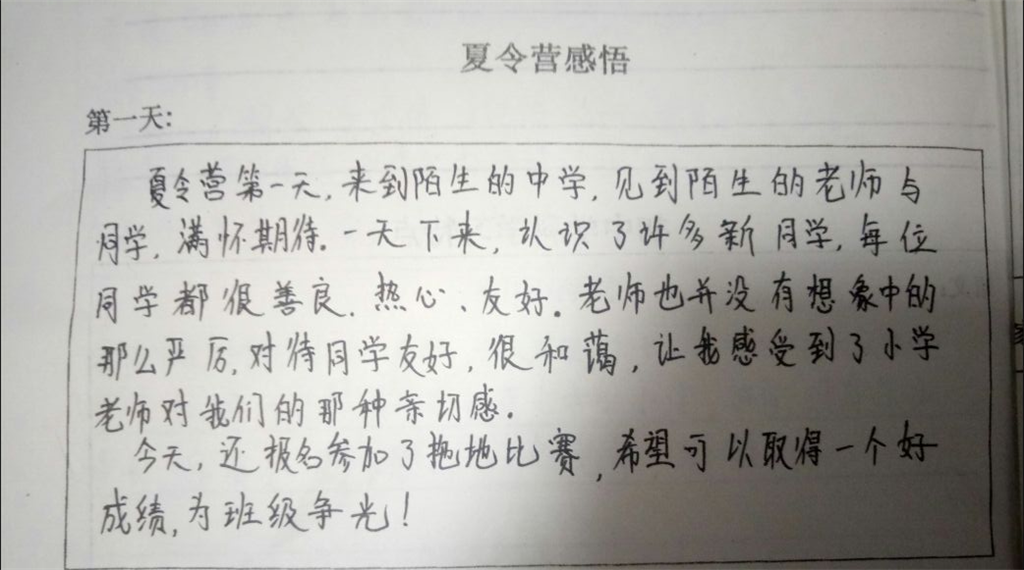 夏令营感悟
第一天:
夏令营第一天,来到陌生的中学,见到陌生的老师与
同学,满怀期待。一天下来,认识了许多新同学,每位
同学都很善良、热心、友好。老师也并没有想象中的
那么严厉,对待同学友好,很和蔼,让我感受到了小学
老师对我们的那种亲切感。
今天,还报名参加了拖地比赛,希望可以取得一个好
成绩,为班级争光!